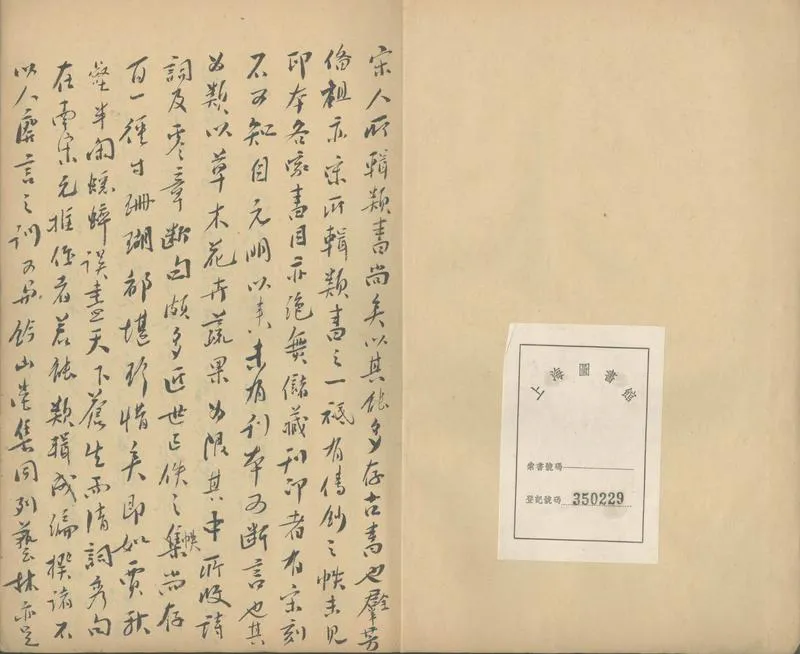 宋人所輯類書尚矣以其能多存古書也羣芳
備祖亦宋所輯類書之一祗有傳鈔之帙未見
印本各家書目亦絕無儲藏刊印者有宋刻
不可知自元明以來未有刊本可斷言也其
書類以草木花卉蔬果為限其中所收詩
詞及零章斷句頗多近世已佚之集尚存
帙
百一徑寸珊瑚都堪珍惜矣即如賈秋
壑半閒蟋蟀誤盡天下蒼生而清詞秀句
在南宋元推作者若能類輯成編揆諸不
以人廢言之訓可與鈐山堂集同列藝林亦足
上海圖書館
索書號碼
登記號碼 350229